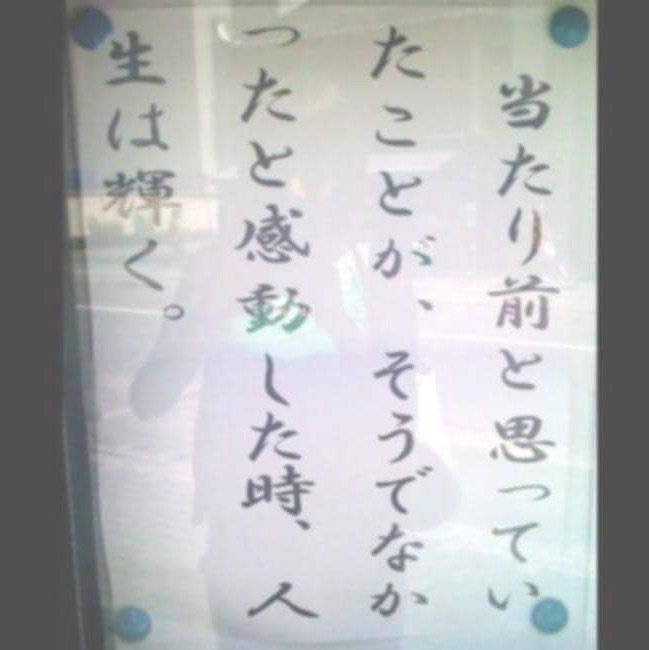 当たり前と思ってい
たことが、そうでなか
ったと感動した時、人
生は輝く。